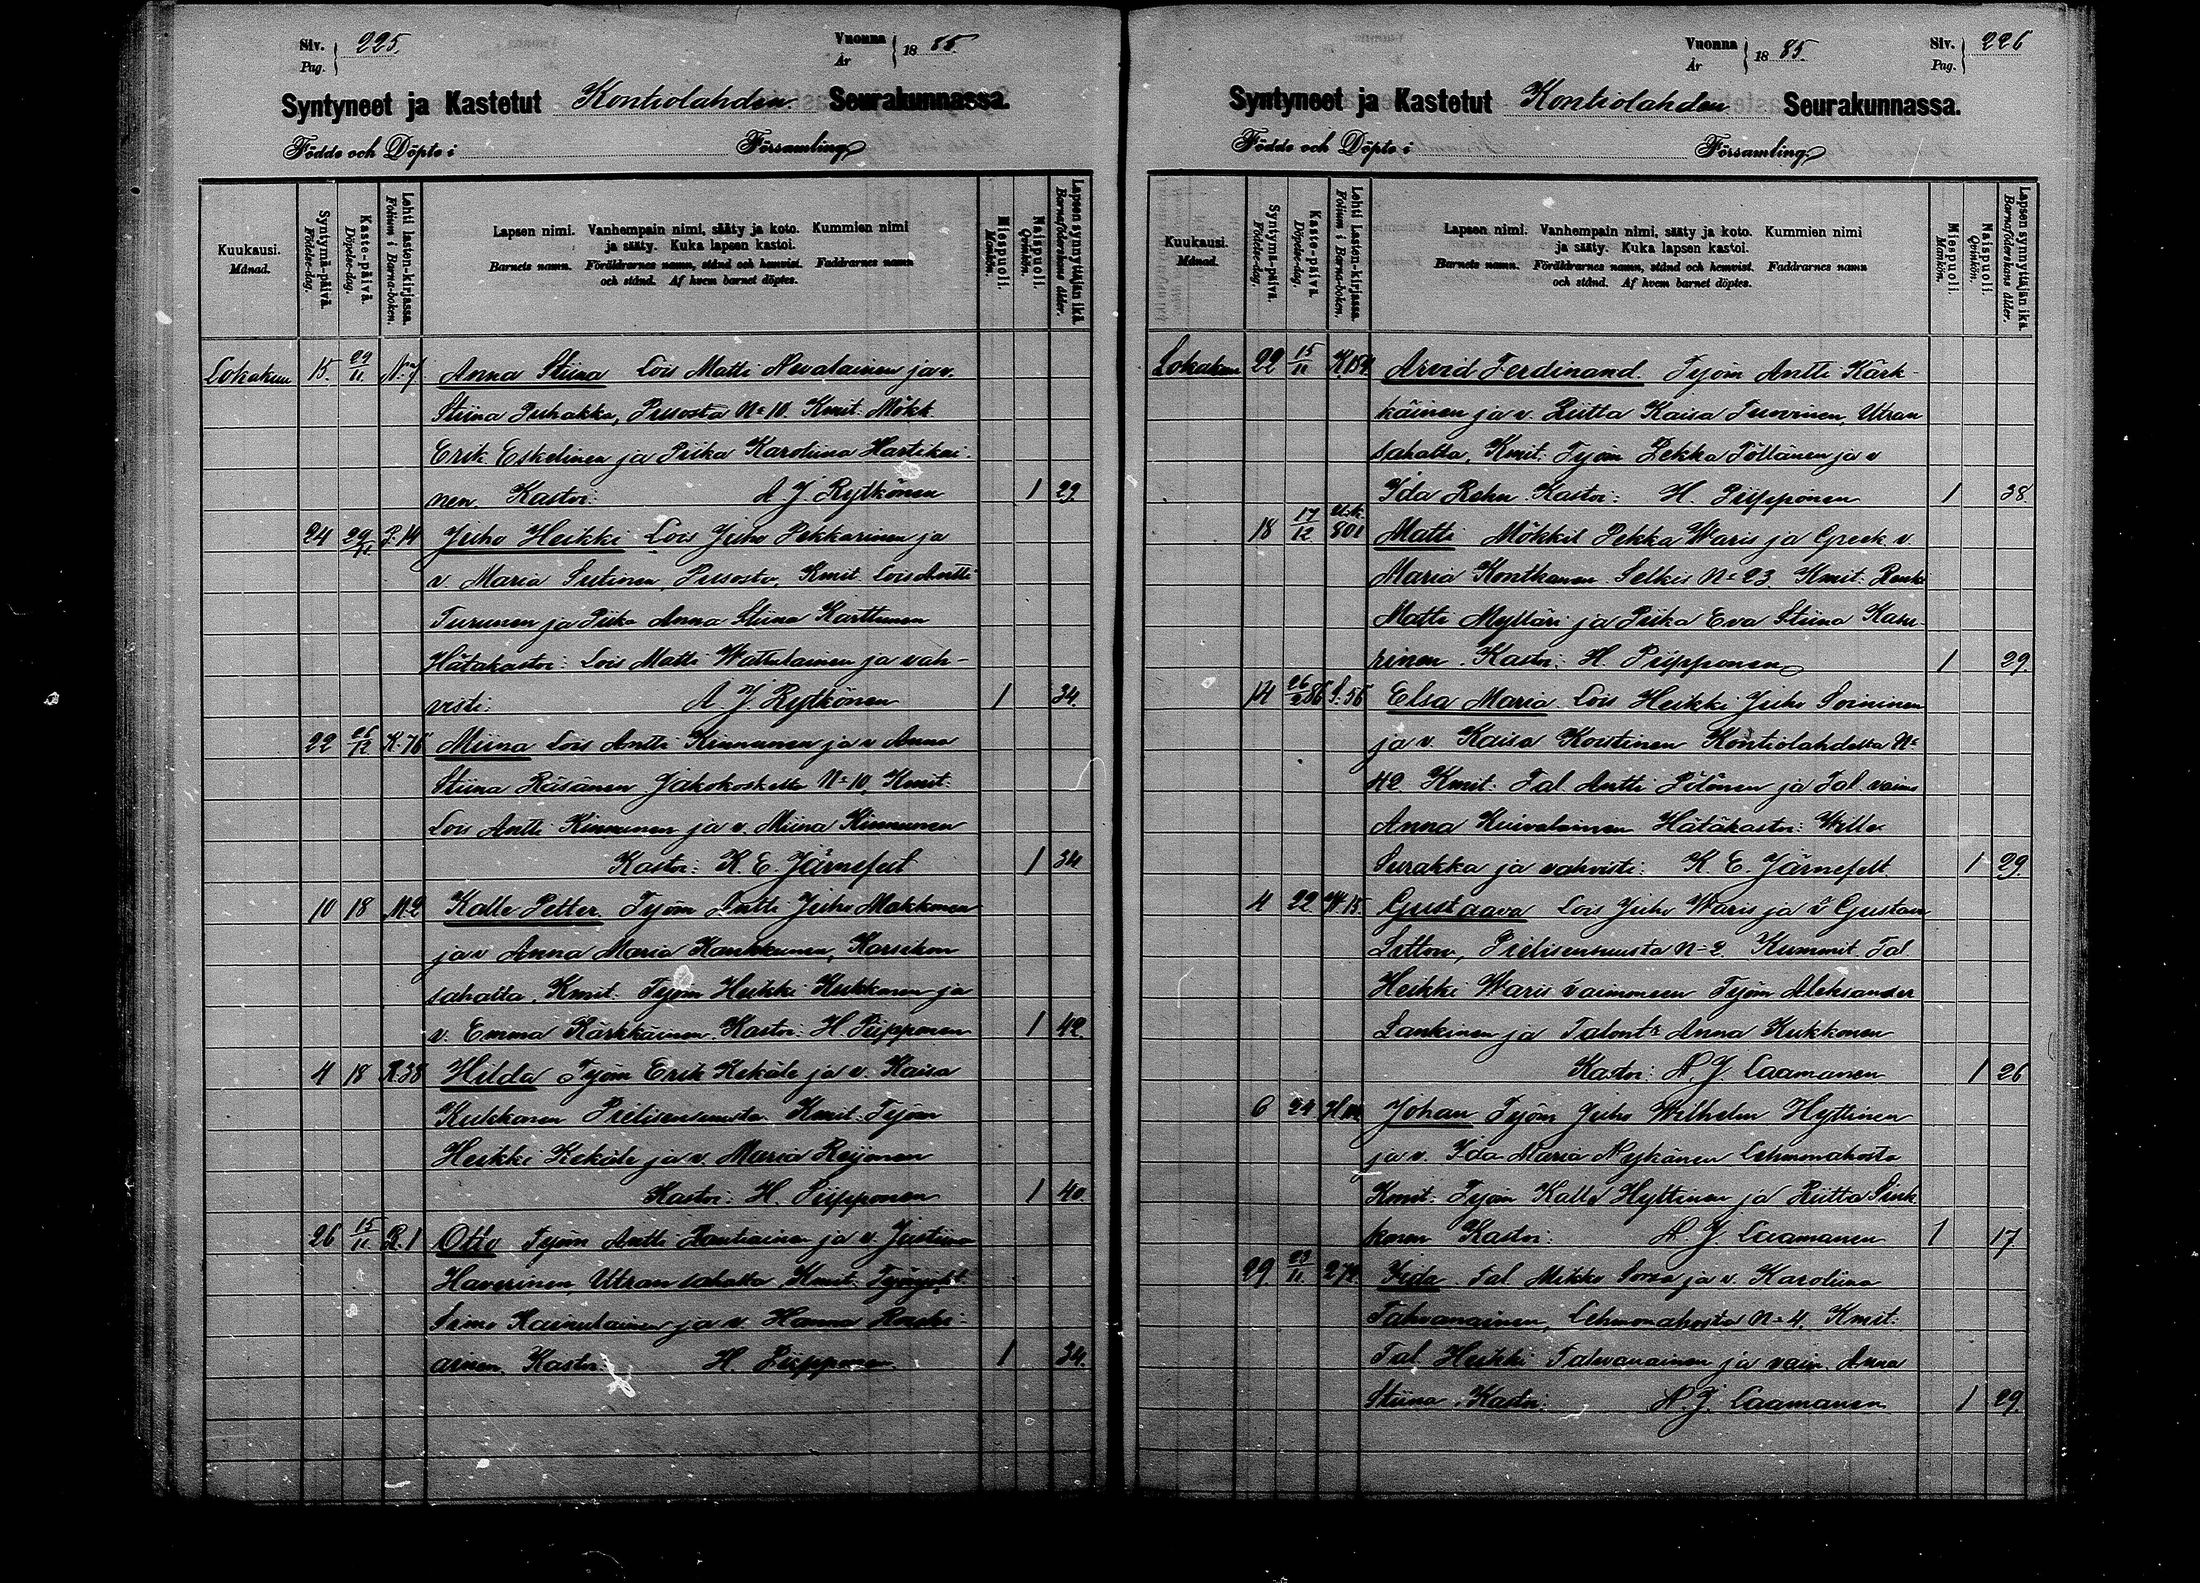 Siv. 225.
Pag.
Vuonna 1885.
År
Syntyneet ja Kastetut Kontiolahden Seurakunnassa.
Födde och Döpte i Församling
Kuukausi.
Månad.
Syntymä-päivä.
Födelse-dag.
Kaste-päivä.
Döpelse-dag.
Lehti lasten-kirjassa.
Folium i Barna-boken.
Lapsen nimi. Vanhempain nimi, sääty ja koto. Kummien nimi
ja sääty. Kuka lapsen kastoi.
Barnets namn. Föräldrarnes namn, stånd och hemvist. Faddrarnes namn
och stånd. Af hvem barnet döptes.
Miespuoli.
Mankön.
Naispuoli.
Qvinkön.
Lapsen synnyttäjän ikä.
Barnaföderskans ålder.
Lokakuu 15. 29/11 Anna Stiina Lois Matti Nevalainen ja v.
Stiina Puhakka, Pusosta No 10. Kmit. Mökk
Erik Eskelinen ja Piika Karoliina Hartikai-
nen. Kastoi: A J Rytkönen 1 29
24 29/11 P. 14 Juho Heikki Lois Juho Pekkarinen ja
v Maria Sutinen, Pusosta, Kmit Lois Antti
Turunen ja Piika Anna Stiina Karttunen
Hätäkastoi: Lois Matti Wattulainen ja vah-
visti: A. J. Rytkönen 1 34.
22 26/12 K. 76 Miina Lois Antti Kinnunen ja v Anna
Stiina Räsänen Jakokoskelta No 10, Kmit:
Lois Antti Kinnunen ja v. Miina Kinnunen
Kastoi: K. E. Järnefelt 1 34
10 18 M2 Kalle Petter. Työm Antti Juho Makkonen
ja v Anna Maria Kankkunen, Karsikon
sahalta, Kmit: Työm Heikki Kukkonen ja
v. Emma Kärkkäinen. Kastoi: H Piipponen 1 42.
4 18 R.38 Hilda Työm Erik Kekäle ja v. Kaisa
Kukkonen Pielisensuusta Kmit. Työm
Heikki Kekäle ja v. Maria Reijonen
Kastoi: H. Piipponen 1 40.
26 15/11 R. 1 Otto Työm Antti Rantiainen ja v. Justiina
Haverinen, Utran sahalta, Kmit.
Simo Kainulainen ja v. Hanna
arinen. Kastoi: H. Piipponen 1 34.
Vuonna 1885.
År
Siv. 226
Pag.
Syntyneet ja Kastetut Kontiolahden Seurakunnassa.
Födde och Döpte i Församling
Kuukausi.
Månad.
Syntymä-päivä.
Födelse-dag.
Kaste-päivä.
Döpelse-dag.
Lehti Lasten-kirjassa.
Folium i Barna-boken.
Lapsen nimi. Vanhempain nimi, sääty ja koto. Kummien nimi
ja sääty. Kuka lapsen kastoi.
Barnets namn. Föräldrarnes namn, stånd och hemvist. Faddrarnes namn
och stånd. Af hvem barnet döptes.
Miespuoli.
Mankön.
Naispuoli.
Qvinkön.
Lapsen synnyttäjän ikä.
Barnaföderskans ålder.
Lokakuu 22 15/11 Arvid Ferdinand. Työm Antti Kärk-
käinen ja v. Riitta Kaisa Turvinen, Utran
sahalta, Kmit: Työm Pekka Pöllänen ja v
Ida Rehn. Kastoi: H. Piipponen 1 38.
18 17/12 801 Matti Mökkil Pekka Waris ja Greek. v.
Maria Kontkanen. Selkie No 23. Kmit: Renki
Matti Mylläri ja Piika Eva Stiina Kasu-
rinen. Kastoi: H. Piipponen 1 29.
14 26/2 86 S. 56 Elsa Maria. Lois Heikki Juho Soininen
ja v. Kaisa Koistinen Kontiolahdelta No
42 Kmit: Tal Antti Piironen ja Tal. vaimo
Anna Kuivalainen. Hätäkastoi: Wille
Surakka ja vahvisti: K. E. Järnefelt 1 29.
4 22 W.15. Gustaava Lois Juho Waris ja v Gustaava
Pielisensuusta No 2. Kummit. Tal
Heikki Waris vaimoneen Työm Aleksander
Lankinen ja Talont. Anna Kukkonen
Kastoi: A. J. Laamanen 1 26
6 24 Johan Työm Juho Wilhelm Hyttinen
ja v. Ida Maria Nykänen Lehmonahosta
Kmit: Työm Kalle Hyttinen ja Riitta Sink-
konen Kastoi: A. J. Laamanen 1 17
29 23/11 272 Iida Tal Mikko Sorsa ja v. Karoliina
Tahvanainen, Lehmonahosta No 4. Kmit:
Tal Heikki Tahvanainen ja vaim. Anna
Stiina. Kastoi: A. J. Laamanen 1 29.